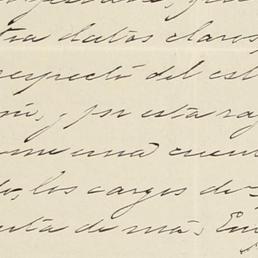 tra datos claros,
respecto del est
ni, y por esta ra
ome una cuen
do, los cargos de
enta de más. En